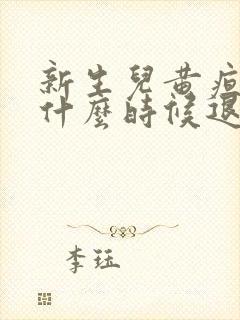 新生兒黃疸
什麼時候退
李珏